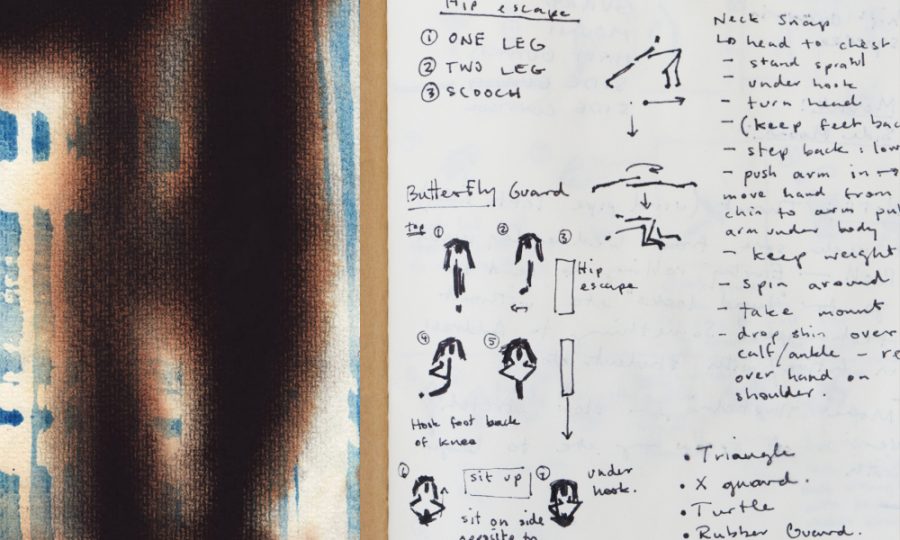 Hip escape
① ONE LEG
② TWO LEG
③ SCOOCH
Butterfly Guard
top ① ② ③
Hip
escape
④ ⑤
Hook foot back
of knee
⑥ sit up ⑦ under
hook.
sit on side
opposite to
Neck Snap
↳ head to chest
- stand sprawl
- under hook
- turn head
- (keep feet bac
- step back : low
- push arm in →
move hand from
chin to arm pul
arm under body
- keep weight
- spin around
- take mount
- drop shin over
calf/ankle - re
over hand on
shoulder.
• Triangle
• X guard.
• Turtle
• Rubber Guard.